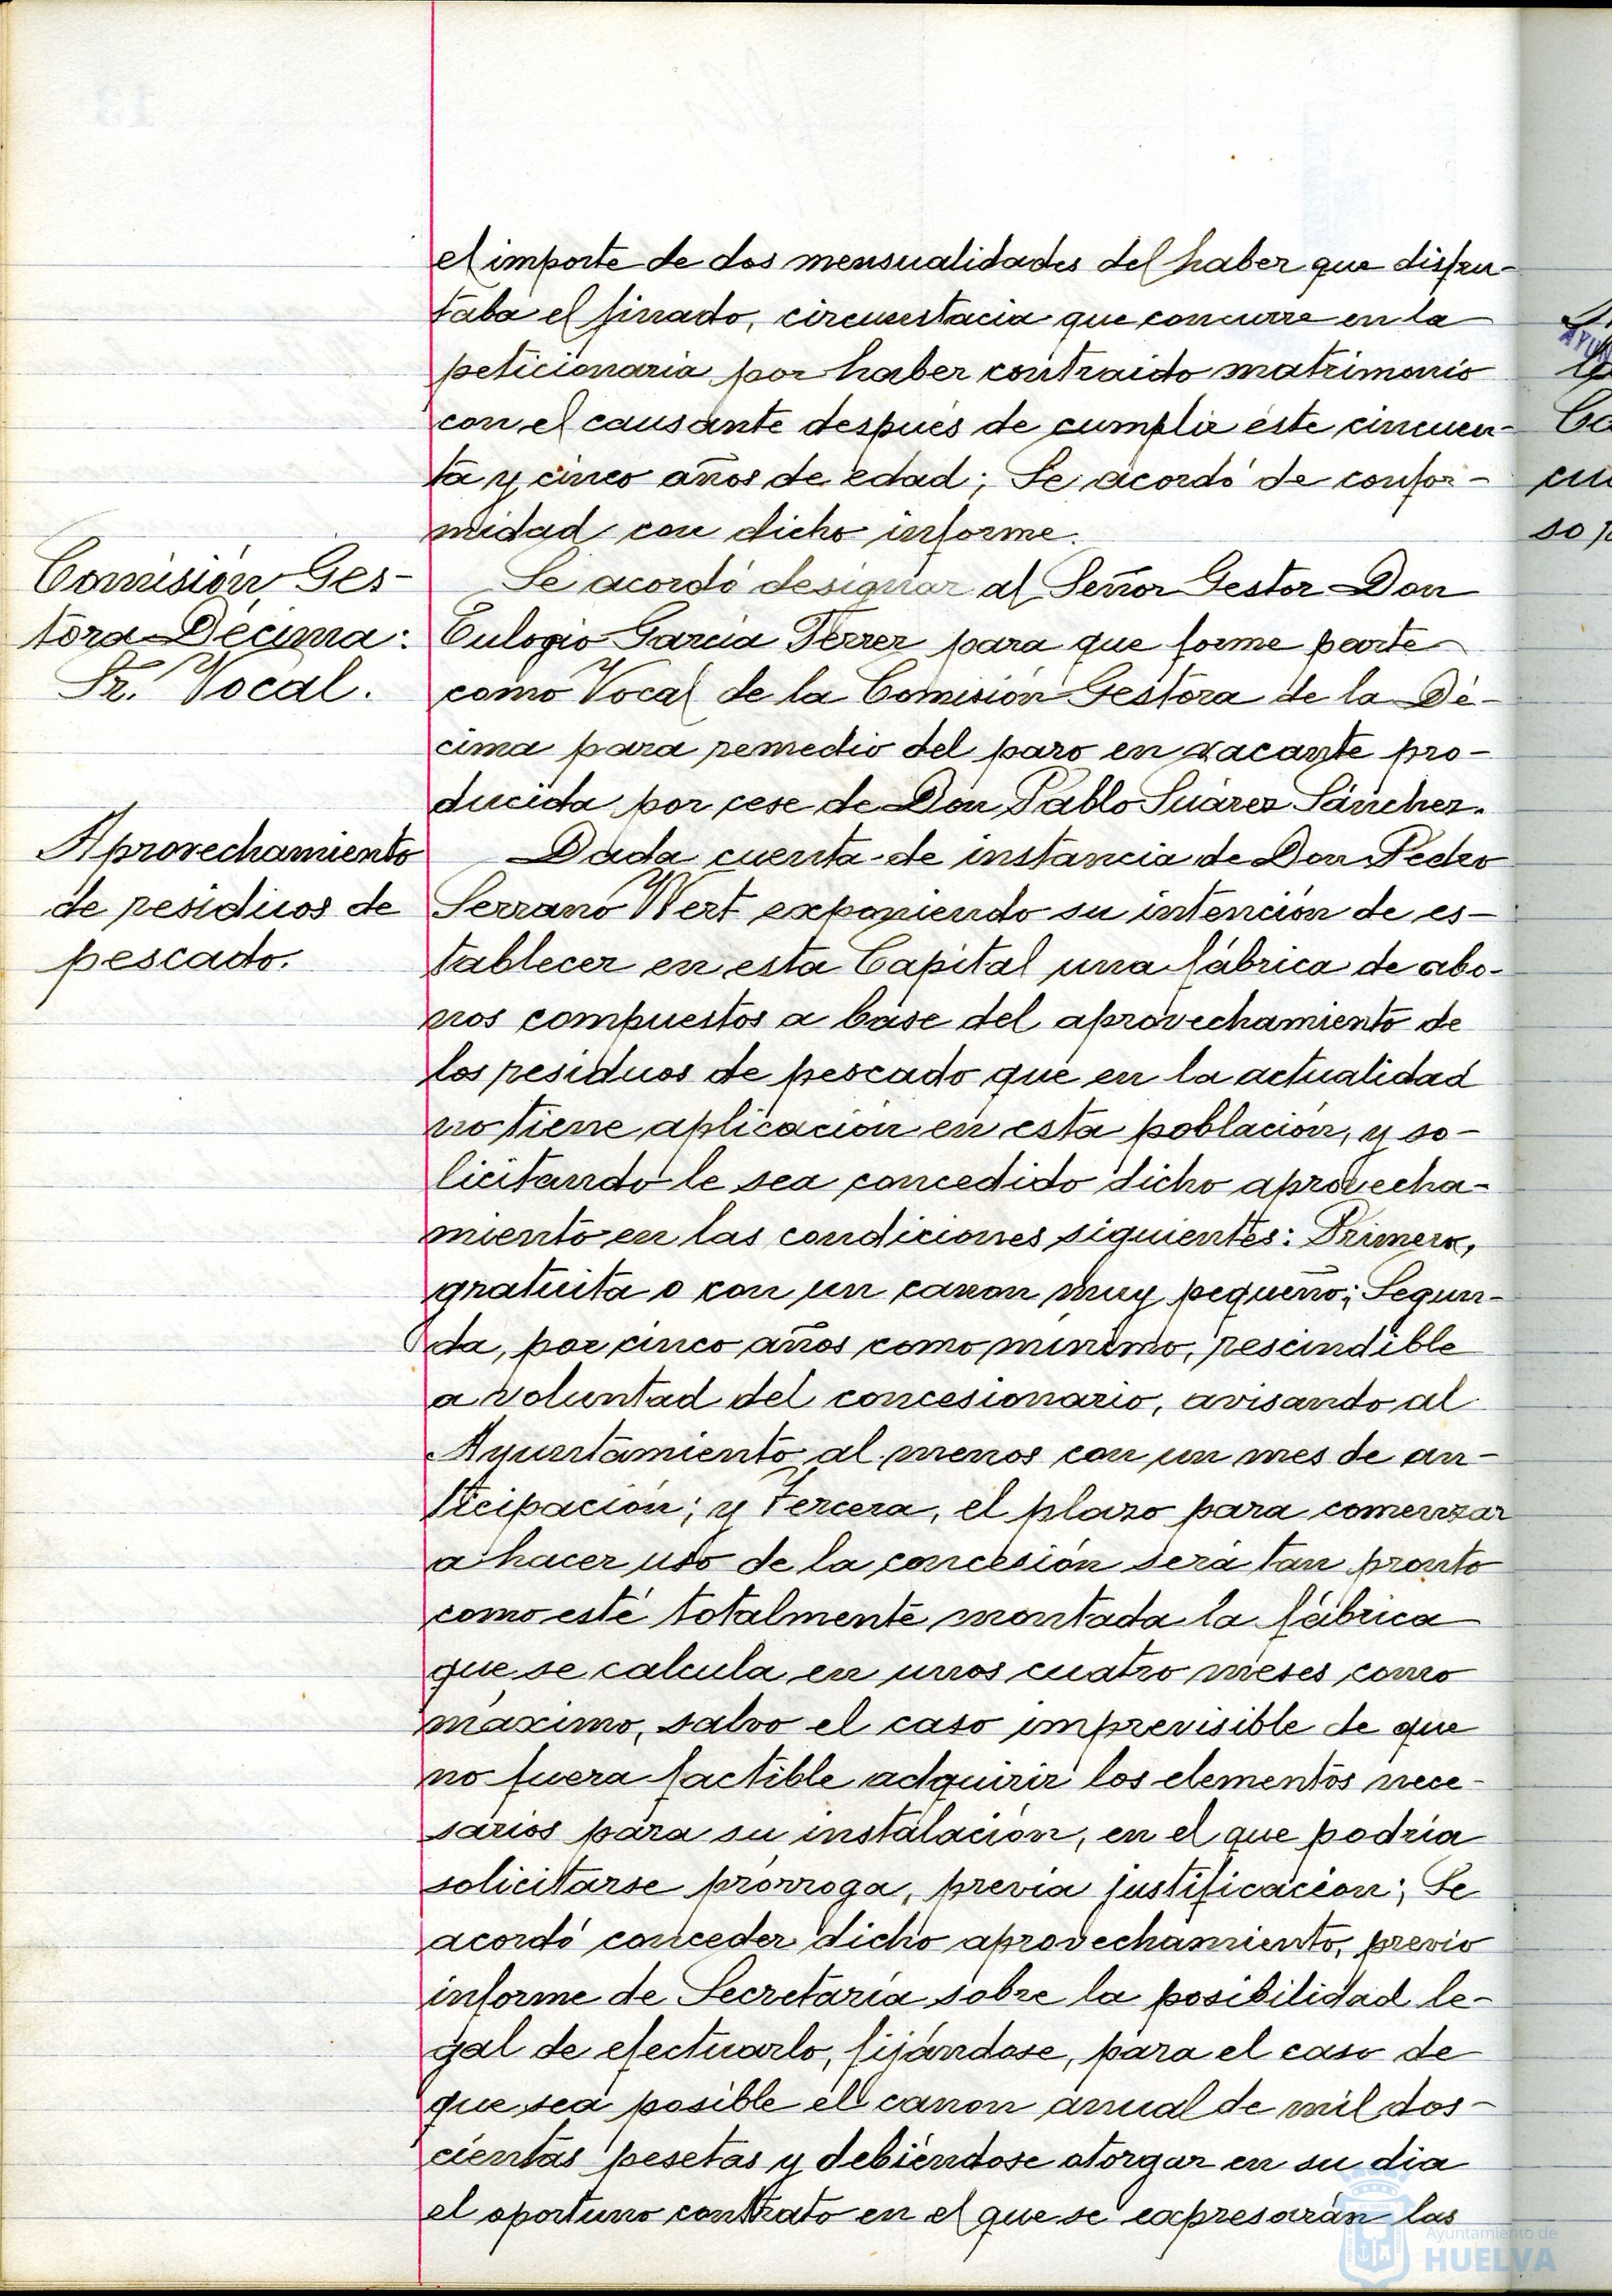 el importe de dos mensualidades del haber que disfru-
taba el finado, circunstacia que concurre en la
peticionaria por haber contraido matrimonio
con el causante después de cumplir éste cincuen-
ta y cinco años de edad; Se acordó de confor-
midad con dicho informe.
Comisión Ges-
tora Décima:
Sr. Vocal.
Se acordó designar al Señor Gestor Don
Eulogio García Ferrer para que forme parte
como Vocal de la Comisión Gestora de la Dé-
cima para remedio del paro en vacante pro-
ducida por cese de Don Pablo Suárez Sánchez.
Aprovechamiento
de residuos de
pescado.
Dada cuenta de instancia de Don Pedro
Serrano Wert exponiendo su intención de es-
tablecer en esta Capital una fábrica de abo-
nos compuestos a base del aprovechamiento de
los residuos de pescado que en la actualidad
no tiene aplicación en esta población, y so-
licitando le sea concedido dicho aprovecha-
miento en las condiciones siguientes: Primera,
gratuita o con un canon muy pequeño; Segun-
da, por cinco años como mínimo, rescindible
a voluntad del concesionario, avisando al
Ayuntamiento al menos con un mes de an-
ticipación; y Tercera, el plazo para comenzar
a hacer uso de la concesión será tan pronto
como esté totalmente montada la fábrica
que se calcula en unos cuatro meses como
máximo, salvo el caso imprevisible de que
no fuera factible adquirir los elementos nece-
sarios para su instalación, en el que podría
solicitarse prórroga, previa justificación; Se
acordó conceder dicho aprovechamiento, previo
informe de Secretaría sobre la posibilidad le-
gal de efectuarlo, fijándose, para el caso de
que sea posible el canon anual de mil dos-
cientas pesetas y debiéndose otorgar en su dia
el oportuno contrato en el que se expresarán las
Ayuntamiento de
HUELVA